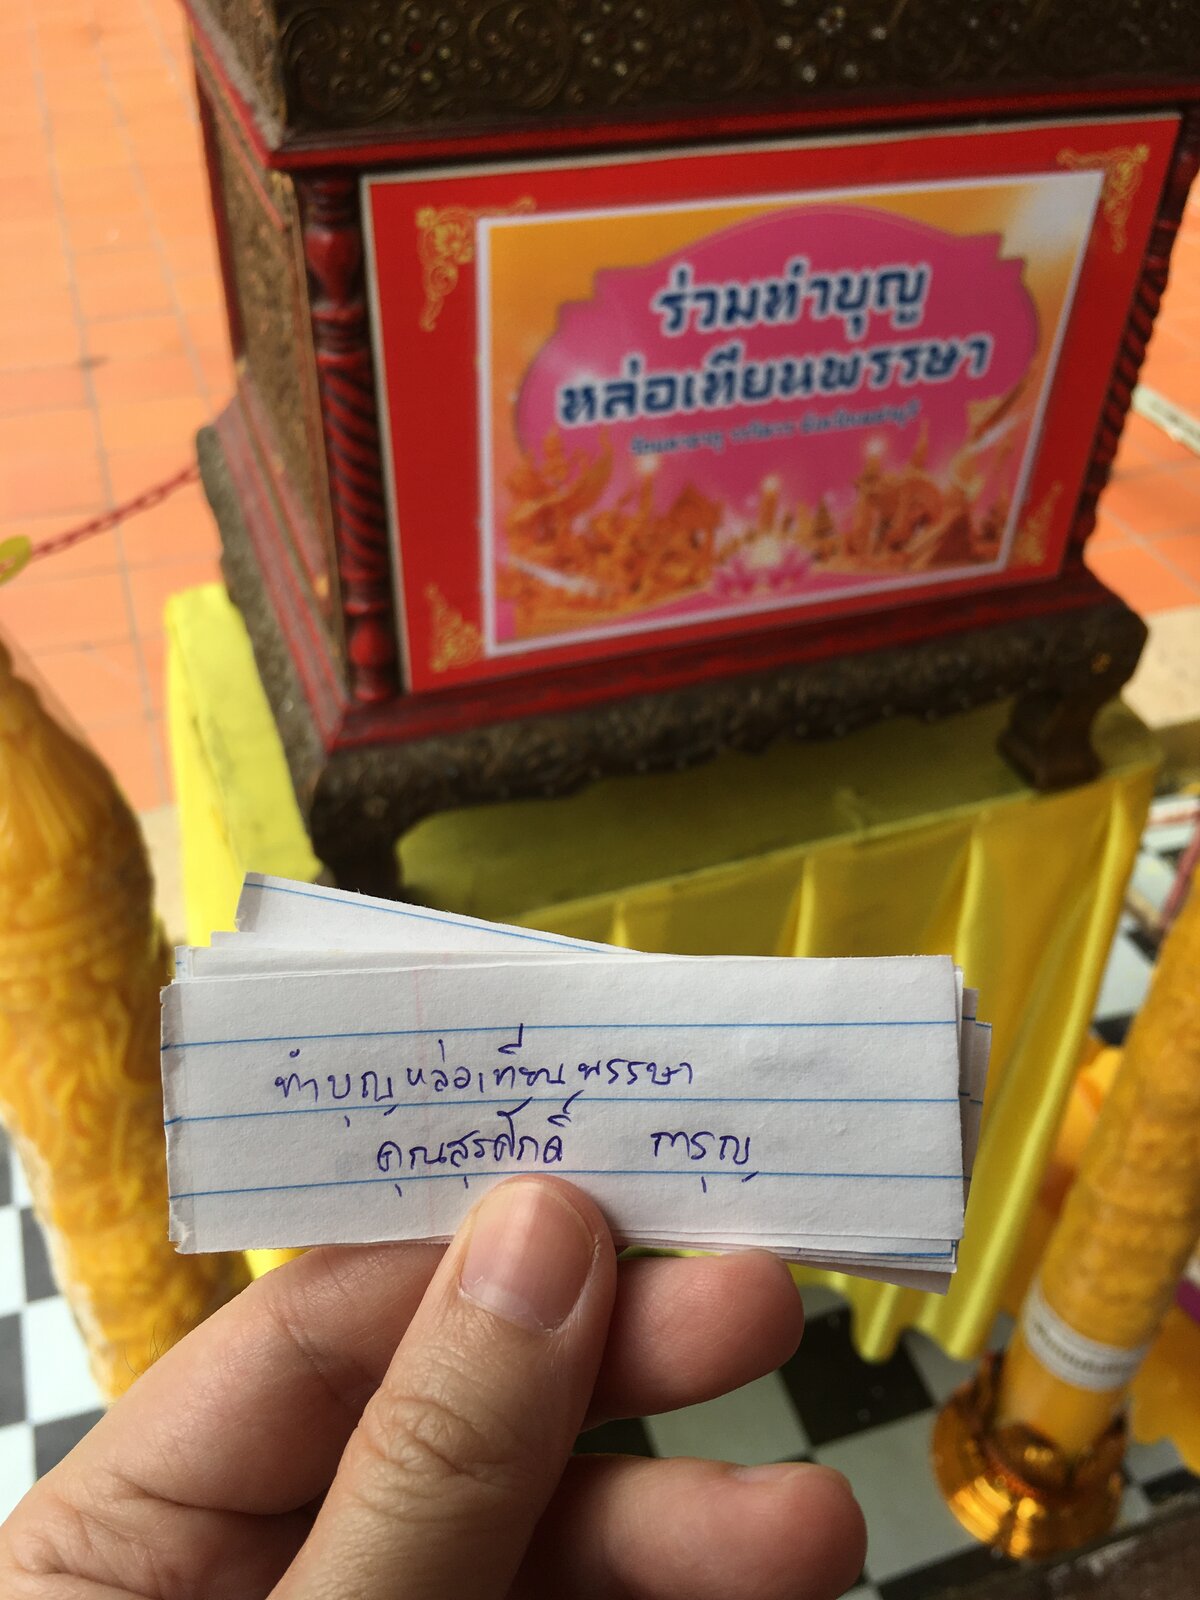 ร่วมทำบุญ
หล่อเทียนพรรษา
ทำบุญหล่อเทียนพรรษา
คุณสุรศักดิ์ การุญ